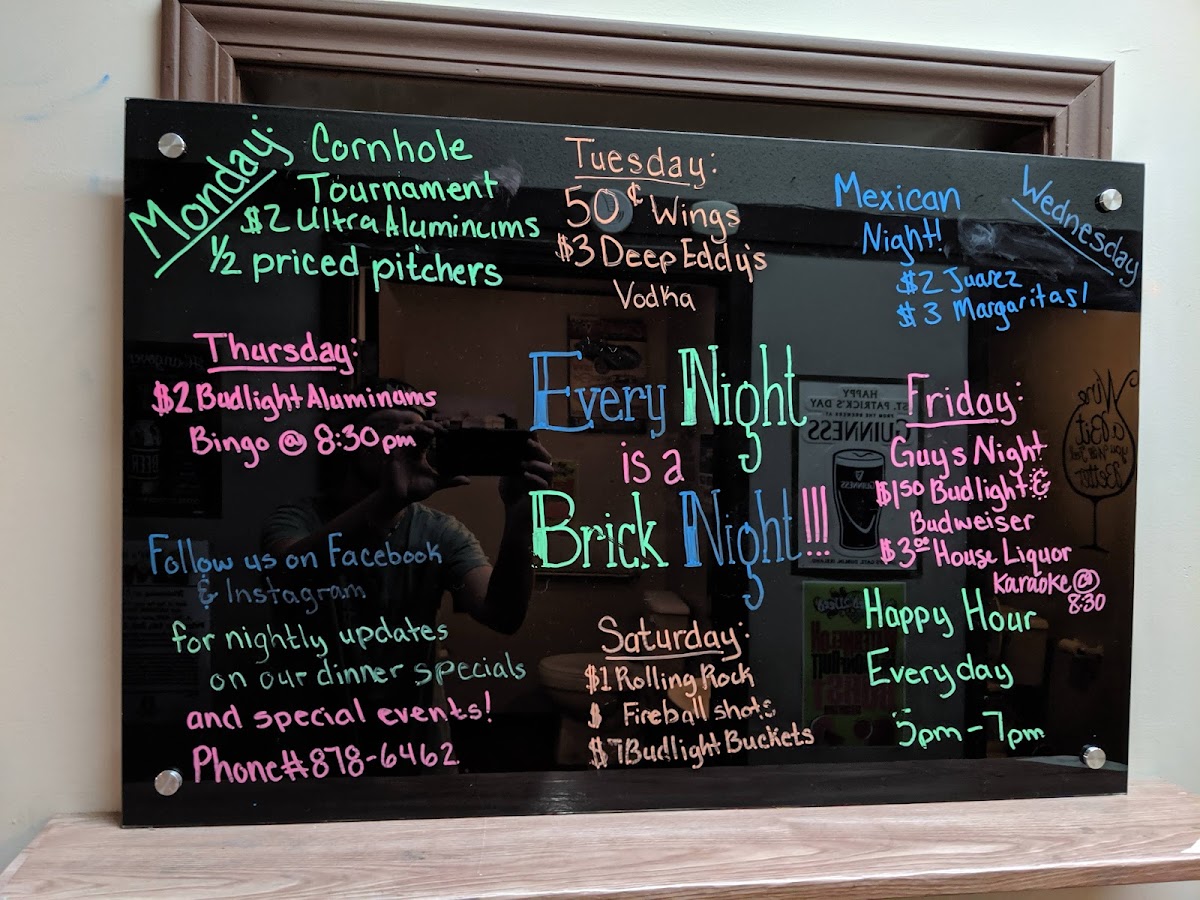 Monday:
Cornhole
Tournament
$2 Ultra Aluminums
1/2 priced pitchers
Tuesday:
50¢ Wings
$3 Deep Eddy's
Vodka
Wednesday
Mexican
Night!
$2 Juarez
$3 Margaritas!
Thursday:
$2 Budlight Aluminums
Bingo @ 8:30pm
Every Night
is a
Brick Night!!!
Friday:
Guys Night
$150 Budlight &
Budweiser
$3.00 House Liquor
Karaoke @
8:30
Follow us on Facebook
& Instagram
for nightly updates
on our dinner specials
and special events!
Phone# 878-6462
Saturday:
$1 Rolling Rock
$ Fireball shots
$7 Budlight Buckets
Happy Hour
Everyday
5pm-7pm
HAPPY
ST. PATRICK'S DAY
GUINNESS
GUINNESS
Wine
a Bit
you'll Feel
Better
BEER